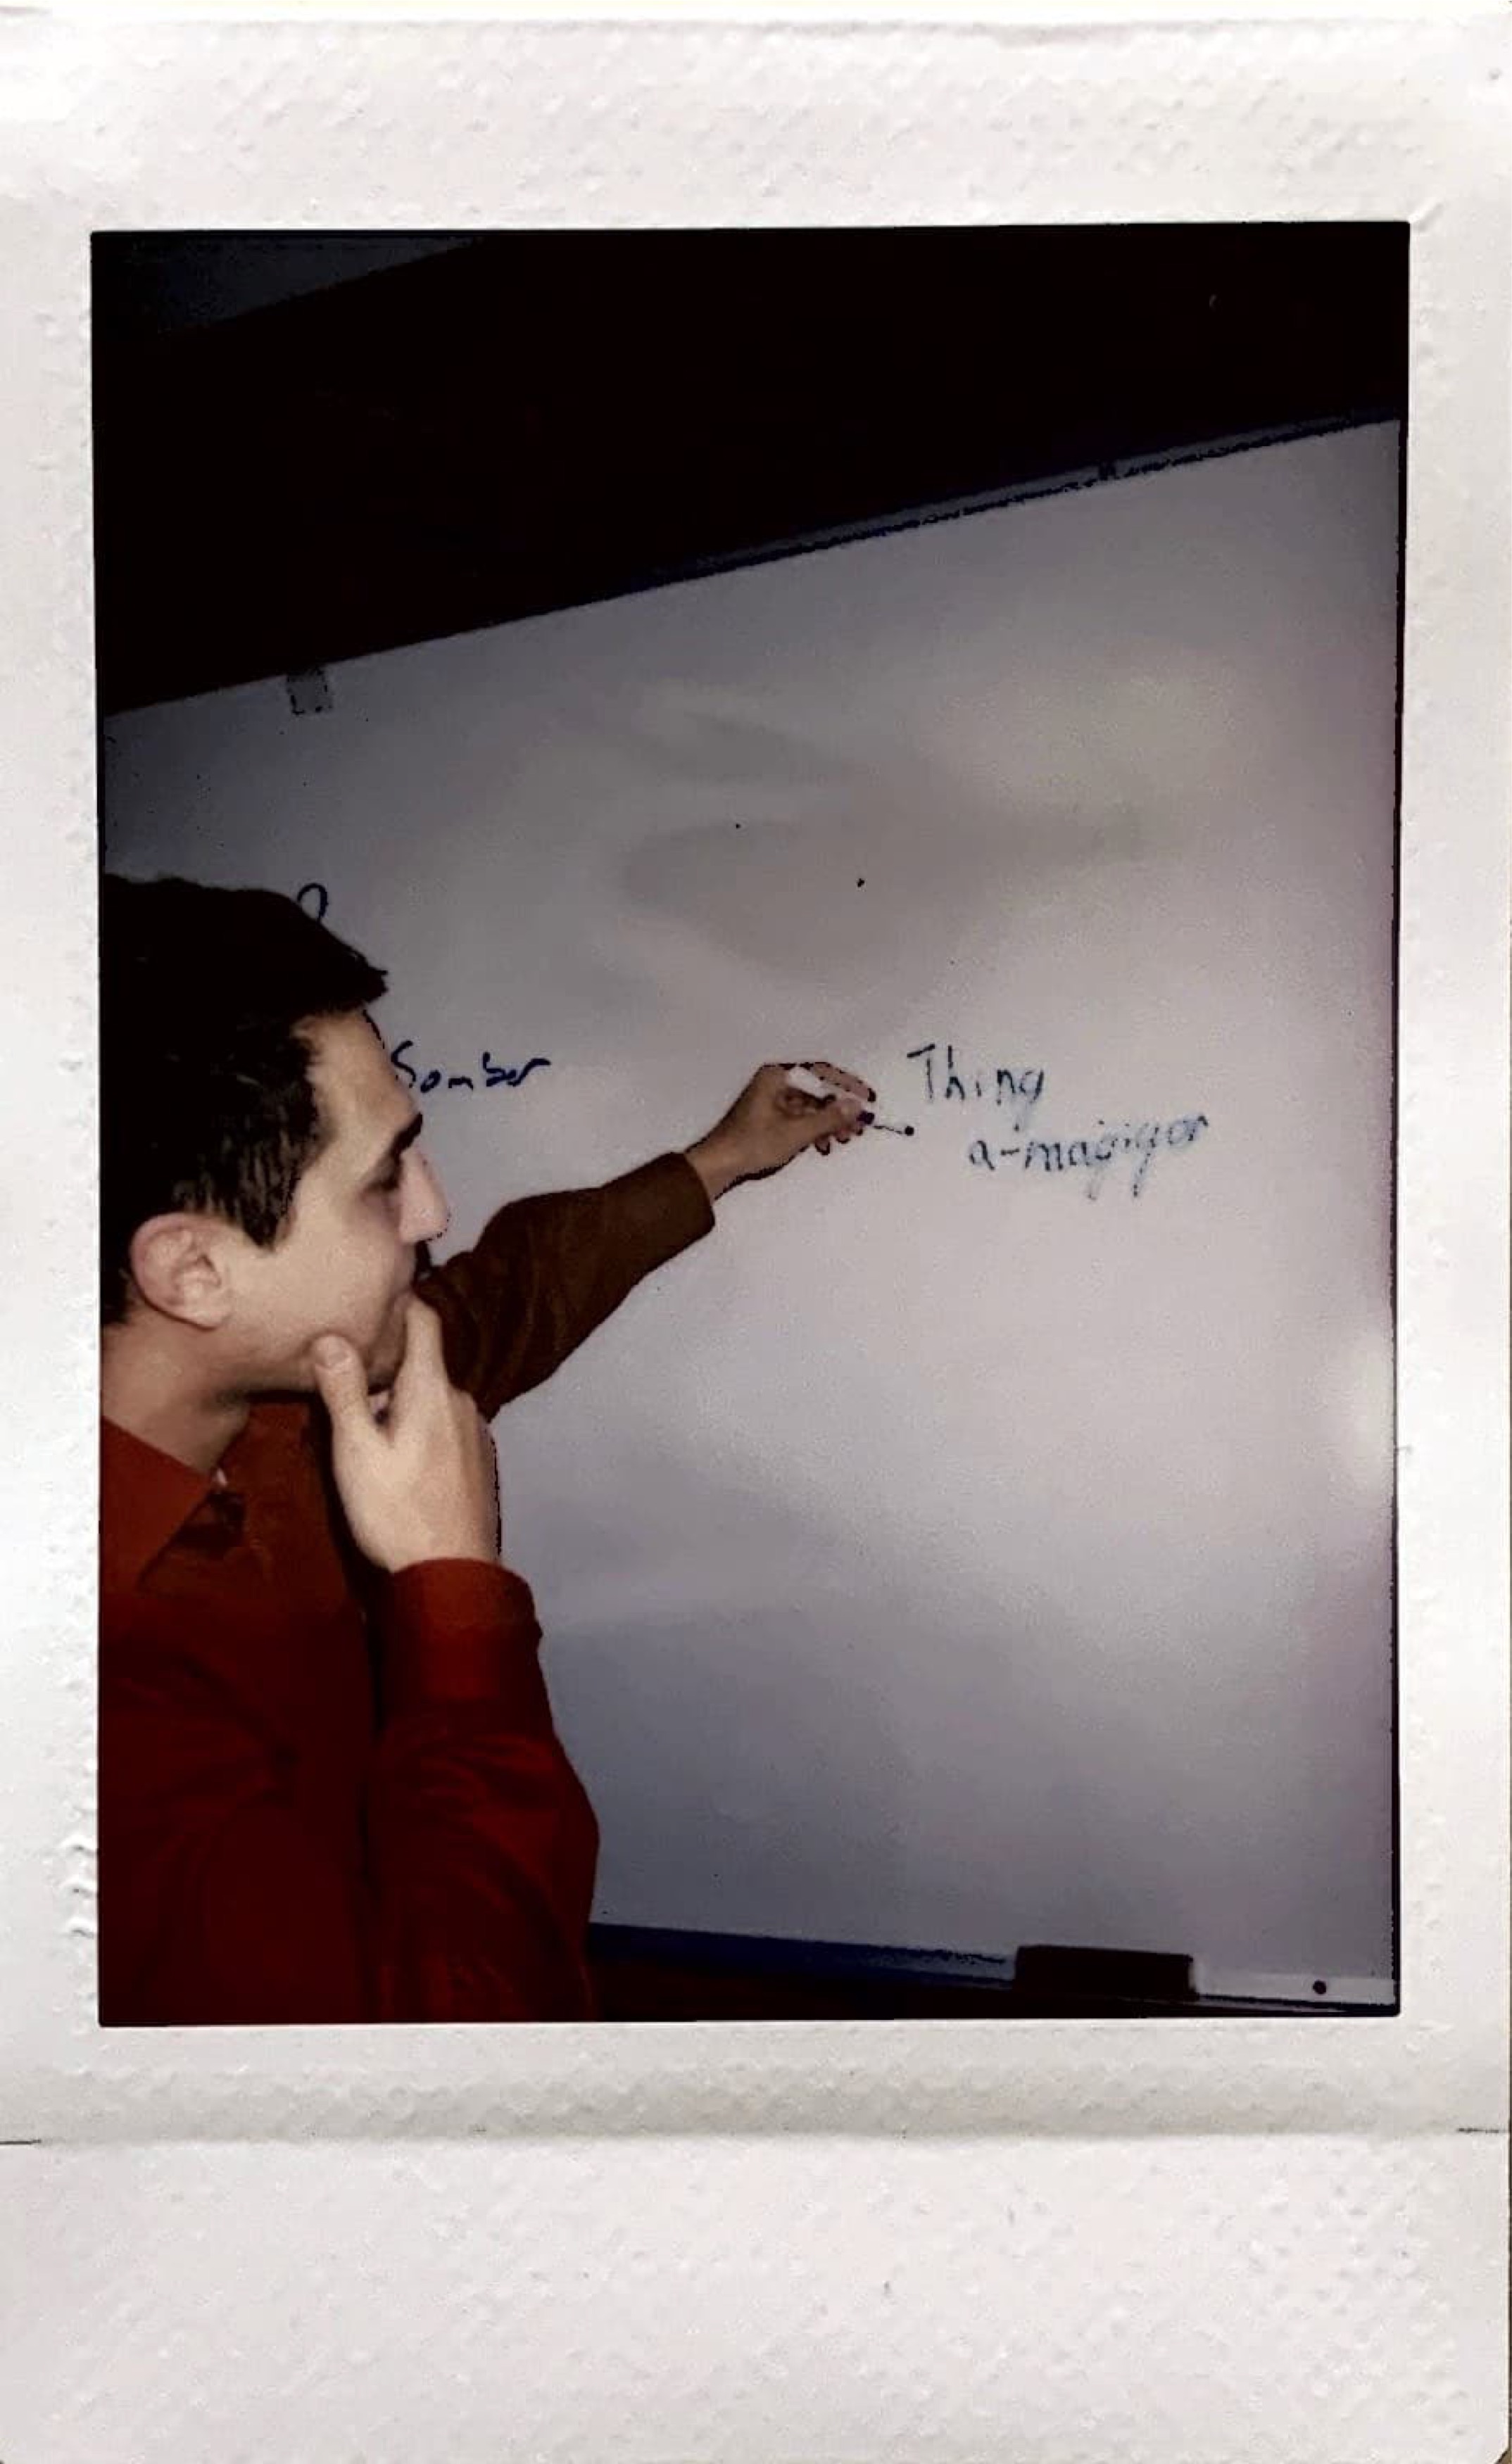 Somber
Thing
a-majigger